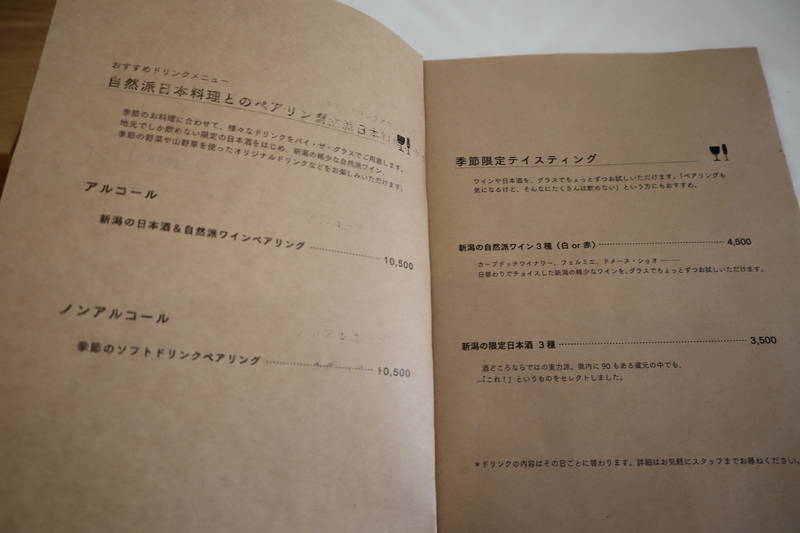 おすすめドリンクメニュー
自然派日本料理とのペアリング
季節のお料理に合わせて、様々なドリンクをバイ・ザ・グラスでご用意します。
地元でしか飲めない限定の日本酒をはじめ、新潟の稀少な自然派ワイン、
季節の野菜や山野草を使ったオリジナルドリンクなどをお楽しみいただけます。
アルコール
新潟の日本酒&自然派ワインペアリング 10,500
ノンアルコール
季節のソフトドリンクペアリング 10,500
季節限定テイスティング
ワインや日本酒を、グラスでちょっとずつお試しいただけます。「ペアリングも
気になるけど、そんなにたくさんは飲めない」という方にもおすすめ。
新潟の自然派ワイン3種(白 or 赤) 4,500
カーブドッチワイナリー、フェルミエ、ドメーヌ・ショオ ――
日替わりでチョイスした新潟の稀少なワインを、グラスでちょっとずつお試しいただけます。
新潟の限定日本酒 3種 3,500
酒どころならではの実力派。県内に90もある蔵元の中でも、
「これ!」というものをセレクトしました。
*ドリンクの内容はその日ごとに替わります。詳細はお気軽にスタッフまでお尋ねください。